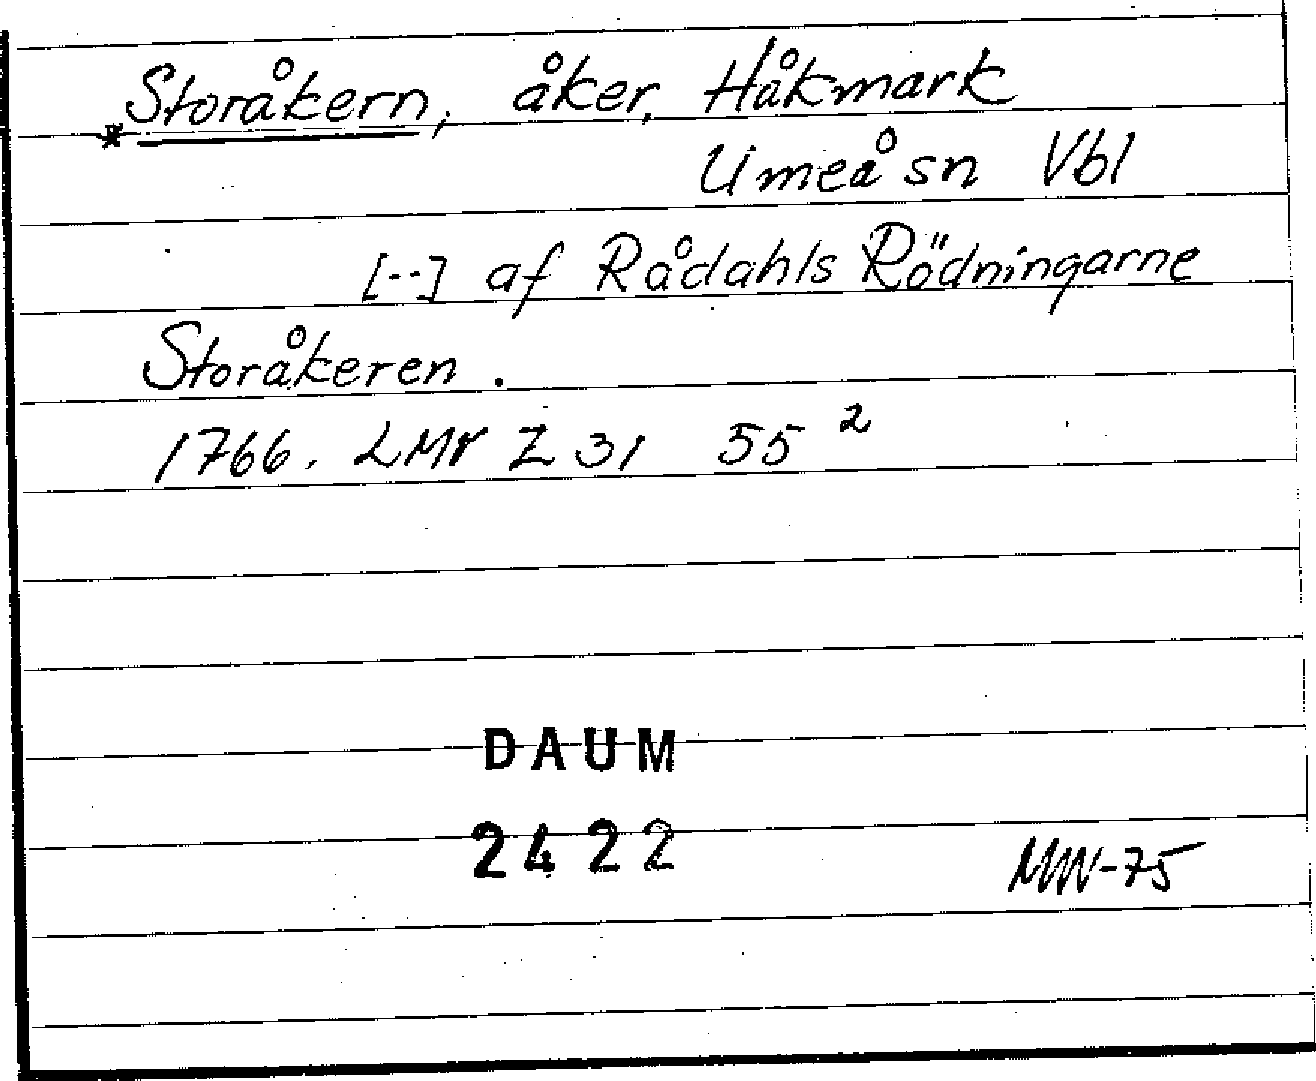 *Storåkern, åker, Håkmark
Umeå sn Vbl
[--] af Rådahls Rödningarne
Storåkeren.
1766. LMV Z 31 55²
DAUM
2422
MW-75